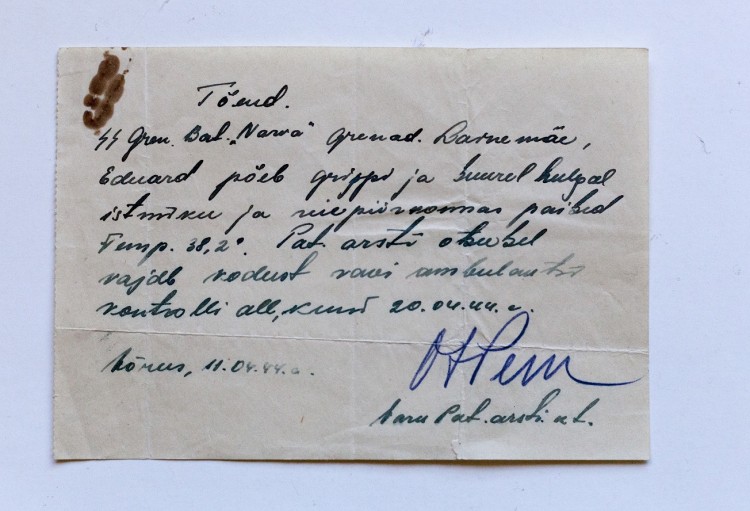 Tõend.
SS Gren. Bat. „Narva" grenad. Darnemäe,
Eduard põeb grippi ja suurel hulgal
istmiku ja paised
Temp. 38,2°. Pat. arsti otsusel
vajab kodust ravi ambulantsi
kontrolli all, kuni 20.04.44.a.
Võrus, 11.04.44.a.
Pat. arsti. at.